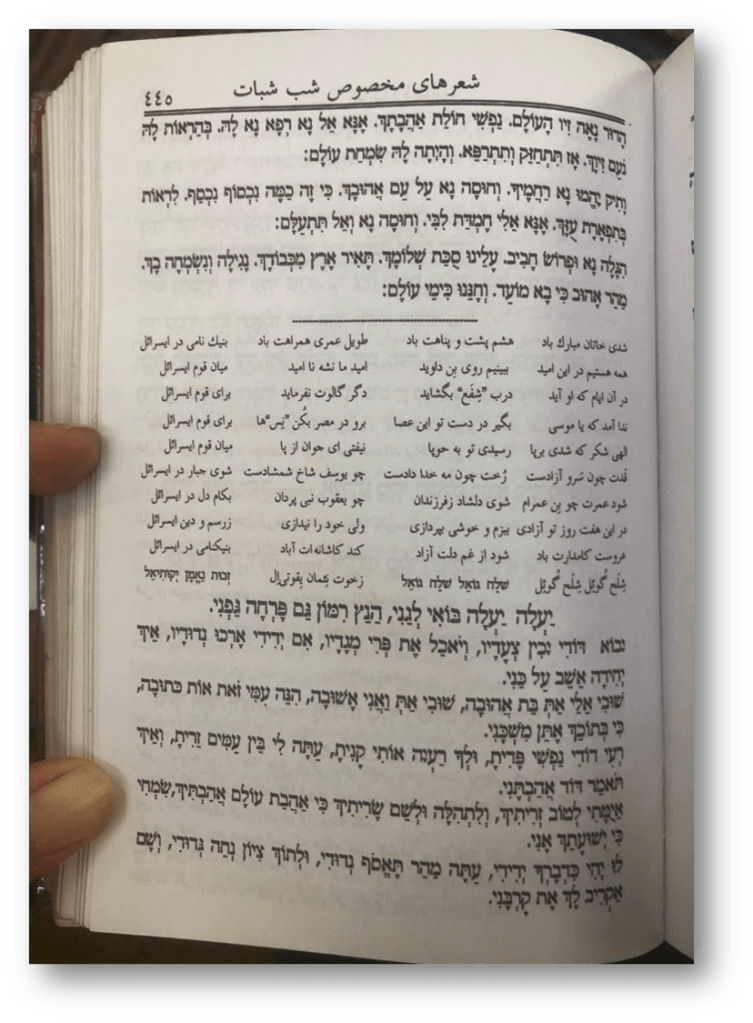 شعرهای مخصوص شب شبات
٤٤٥
הָדוּר נָאֶה זִיו הָעוֹלָם. נַפְשִׁי חוֹלַת אַהֲבָתָךְ. אָנָּא אֵל נָא רְפָא נָא לָהּ. בְּהַרְאוֹת לָהּ
נֹעַם זִיוָךְ. אָז תִּתְחַזֵּק וְתִתְרַפֵּא. וְהָיְתָה לָהּ שִׂמְחַת עוֹלָם:
וָתִיק יֶהֱמוּ נָא רַחֲמֶיךָ. וְחוּסָה נָא עַל עַם אֲהוּבָךְ. כִּי זֶה כַמָּה נִכְסוֹף נִכְסַף. לִרְאוֹת
בְּתִפְאֶרֶת עֻזָּךְ. אָנָּא אֵלִי חֶמְדַּת לִבִּי. וְחוּסָה נָא וְאַל תִּתְעַלָּם:
הִגָּלֶה נָא וּפְרוֹשׂ חָבִיב. עָלֵינוּ סֻכַּת שְׁלוֹמָךְ. תָּאִיר אֶרֶץ מִכְּבוֹדָךְ. נָגִילָה וְנִשְׂמְחָה בָךְ.
מַהֵר אָהוּב כִּי בָא מוֹעֵד. וְחָנֵּנוּ כִּימֵי עוֹלָם:
شدی خاتان مبارك باد هشم پشت و پناهت باد طویل عمری همراهت باد بنیك نامی در ایسرائل
همه هستیم در این امید ببینیم روی بِن داوید امید ما نشه نا امید میان قوم ایسرائل
در آن ایام که او آید درب "شِفَع" بگشاید دگر گالوت نفرماید برای قوم ایسرائل
ندا آمد که یا موسی بگیر در دست تو این عصا برو در مصر بکُن "نِیس"ها برای قوم ایسرائل
الهی شکر که شدی برپا رسیدی تو به حوپا نیفتی ای جوان از پا میان قوم ایسرائل
قدت چون سَرو آزادست رُخت چون مه خدا دادست چو یوسِف شاخ شمشادست شوی جبار در ایسرائل
شود عمرت چو بِن عمرام شوی دلشاد زفرزندان چو یعقوب نبی پردان بکام دل در ایسرائل
در این هفت روز تو آزادی ببزم و خوشی بپردازی ولی خود را نیندازی زرسم و دین ایسرائل
عروست کامدارت باد شود از غم دلت آزاد کند کاشانه‌ات آباد بنیکنامی در ایسرائل
شِلَح گُوئِل شِلَح گُوئِل שלח גואל שלח גואל زخوت نِعْمان یِقوتی‌اِل זכות נעמן יקותיאל
יַעְלָה יַעְלָה בּוֹאִי לְגַנִּי, הֵנֵץ רִמּוֹן גַּם פָּרְחָה גַפְנִי.
יָבוֹא דוֹדִי יָכִין צְעָדָיו, וְיֹאכַל אֶת פְּרִי מְגָדָיו, אִם יְדִידִי אָרְכוּ נְדוּדָיו, אֵיךְ
יְחִידָה אֵשֵׁב עַל כַּנִּי.
שׁוּבִי אֵלַי אַתְּ בַּת אֲהוּבָה, שׁוּבִי אַתְּ וַאֲנִי אָשׁוּבָה, הִנֵּה עִמִּי זֹאת אוֹת כְּתוּבָה,
כִּי בְּתוֹכֵךְ אֶתֵּן מִשְׁכָּנִי.
רֵעִי דוֹדִי נַפְשִׁי פָּדִיתָ, וּלְךָ רַעְיָה אוֹתִי קָנִיתָ, עַתָּה לִי בֵּין עַמִּים זֵרִיתָ, וְאֵיךְ
תֹּאמַר דּוֹד אֲהַבְתָּנִי.
אֲיֻמָּתִי לְטוֹב זֵרִיתִיךְ, וְלִתְהִלָּה וּלְשֵׁם שָׂרִיתִיךְ כִּי אַהֲבַת עוֹלָם אֲהַבְתִּיךְ, שִׂמְחִי
כִּי יְשׁוּעָתֵךְ אָנִי.
לוּ יְהִי כִּדְבָרְךָ יְדִידִי, עַתָּה מַהֵר תֶּאֱסֹף נְדוּדִי, וּלְתוֹךְ צִיּוֹן נְחֵה גְּדוּדִי, וְשָׁם
אַקְרִיב לָךְ אֶת קָרְבָּנִי.